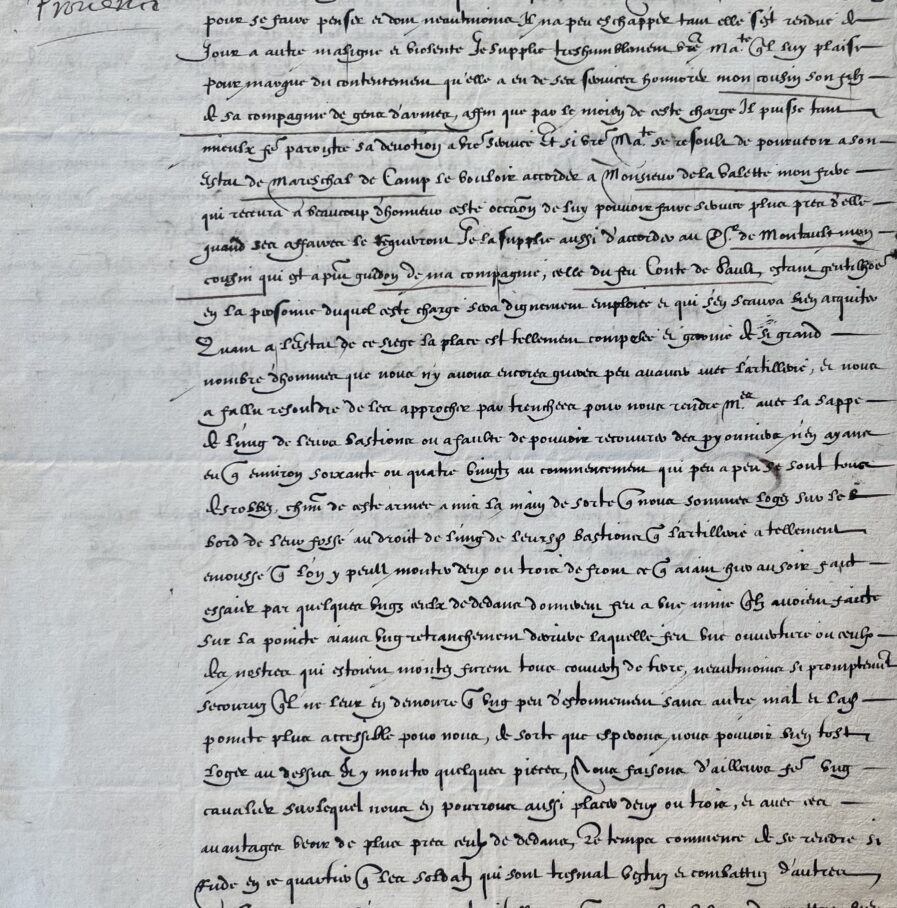 Provence
pour se faire penser et dont neantmoins Il na peu eschapper tant elle sest rendue de
Jour a autre maligne et violente Je supplie treshumblement vre Ma.te ql luy plaise
pour marque du contentement qu'elle a eu de ses services honnorer mon cousin son filz
de sa compagnie de gens d'armes, affin que par le moien de ceste charge Il puisse tant
mieulx fe paroistre sa devotion a vre service Et si vre Ma.te se resoult de pourveoir a son
estat de Mareschal de Camp le vouloir accorder a Monsieur de la Valette mon frere
qui recevra a beaucoup d'honneur ceste occaon de luy pouvoir faire service plus pres d'elle
quand ses affaires le requeront Je la supplie aussi d'accorder au Sr. de Montault mon
cousin qui est a pnt guidon de ma compagnie, celle du feu Conte de Sault, estant gentilhoe
en la personne duquel ceste charge sera dignement emploiee et qui s'en scaura bien acquiter
Quant a l'estat de ce siege la place est tellement composee et garnie de si grand
nombre d'hommes que nous n'y avons encores gueres peu avancer avec l'artillerie, et nous
a fallu resouldre de les approcher par trenchees pour nous rendre m.es avec la sappe
de l'ung de leurs bastions ou a faulte de pouvoir recouvrer des pyonniers n'en ayans
eu q environ soixante ou quatre vingtz au commencement qui peu a peu se sont tous
desrobbez, chm de ceste armee a mis la main de sorte q nous sommes logez sur le
bord de leur fossé au droit de l'ung de leursd bastions q l'artillerie a tellement
emoussé q l'on y peult monter deux ou trois de front ce q aiant hier au soir faict
essaier par quelques ungs ceulx de dedans donnerent feu a une mine qlz avoient faicte
sur la poincte aians ung retranchement derriere laquelle feit une ouverture ou ceulx
des nostres qui estoient montez furent tous couvertz de terre, neantmoins si promptement
secouruz ql ne leur en demoure q ung peu d'estonnement sans autre mal et lad
poincte plus accessible pour nous, de sorte que esperons nous pouvoir bien tost
loger au dessus et y monter quelques pieces, Nous faisons d'ailleurs fe ung
cavalier sur lequel nous en pourrons aussi placer deux ou trois, et avec ces
avantages veoir de plus pres ceulx de dedans, Le temps commence de se rendre si
rude en ce quartier q les soldatz qui sont tresmal vestuz et combattuz d'autres